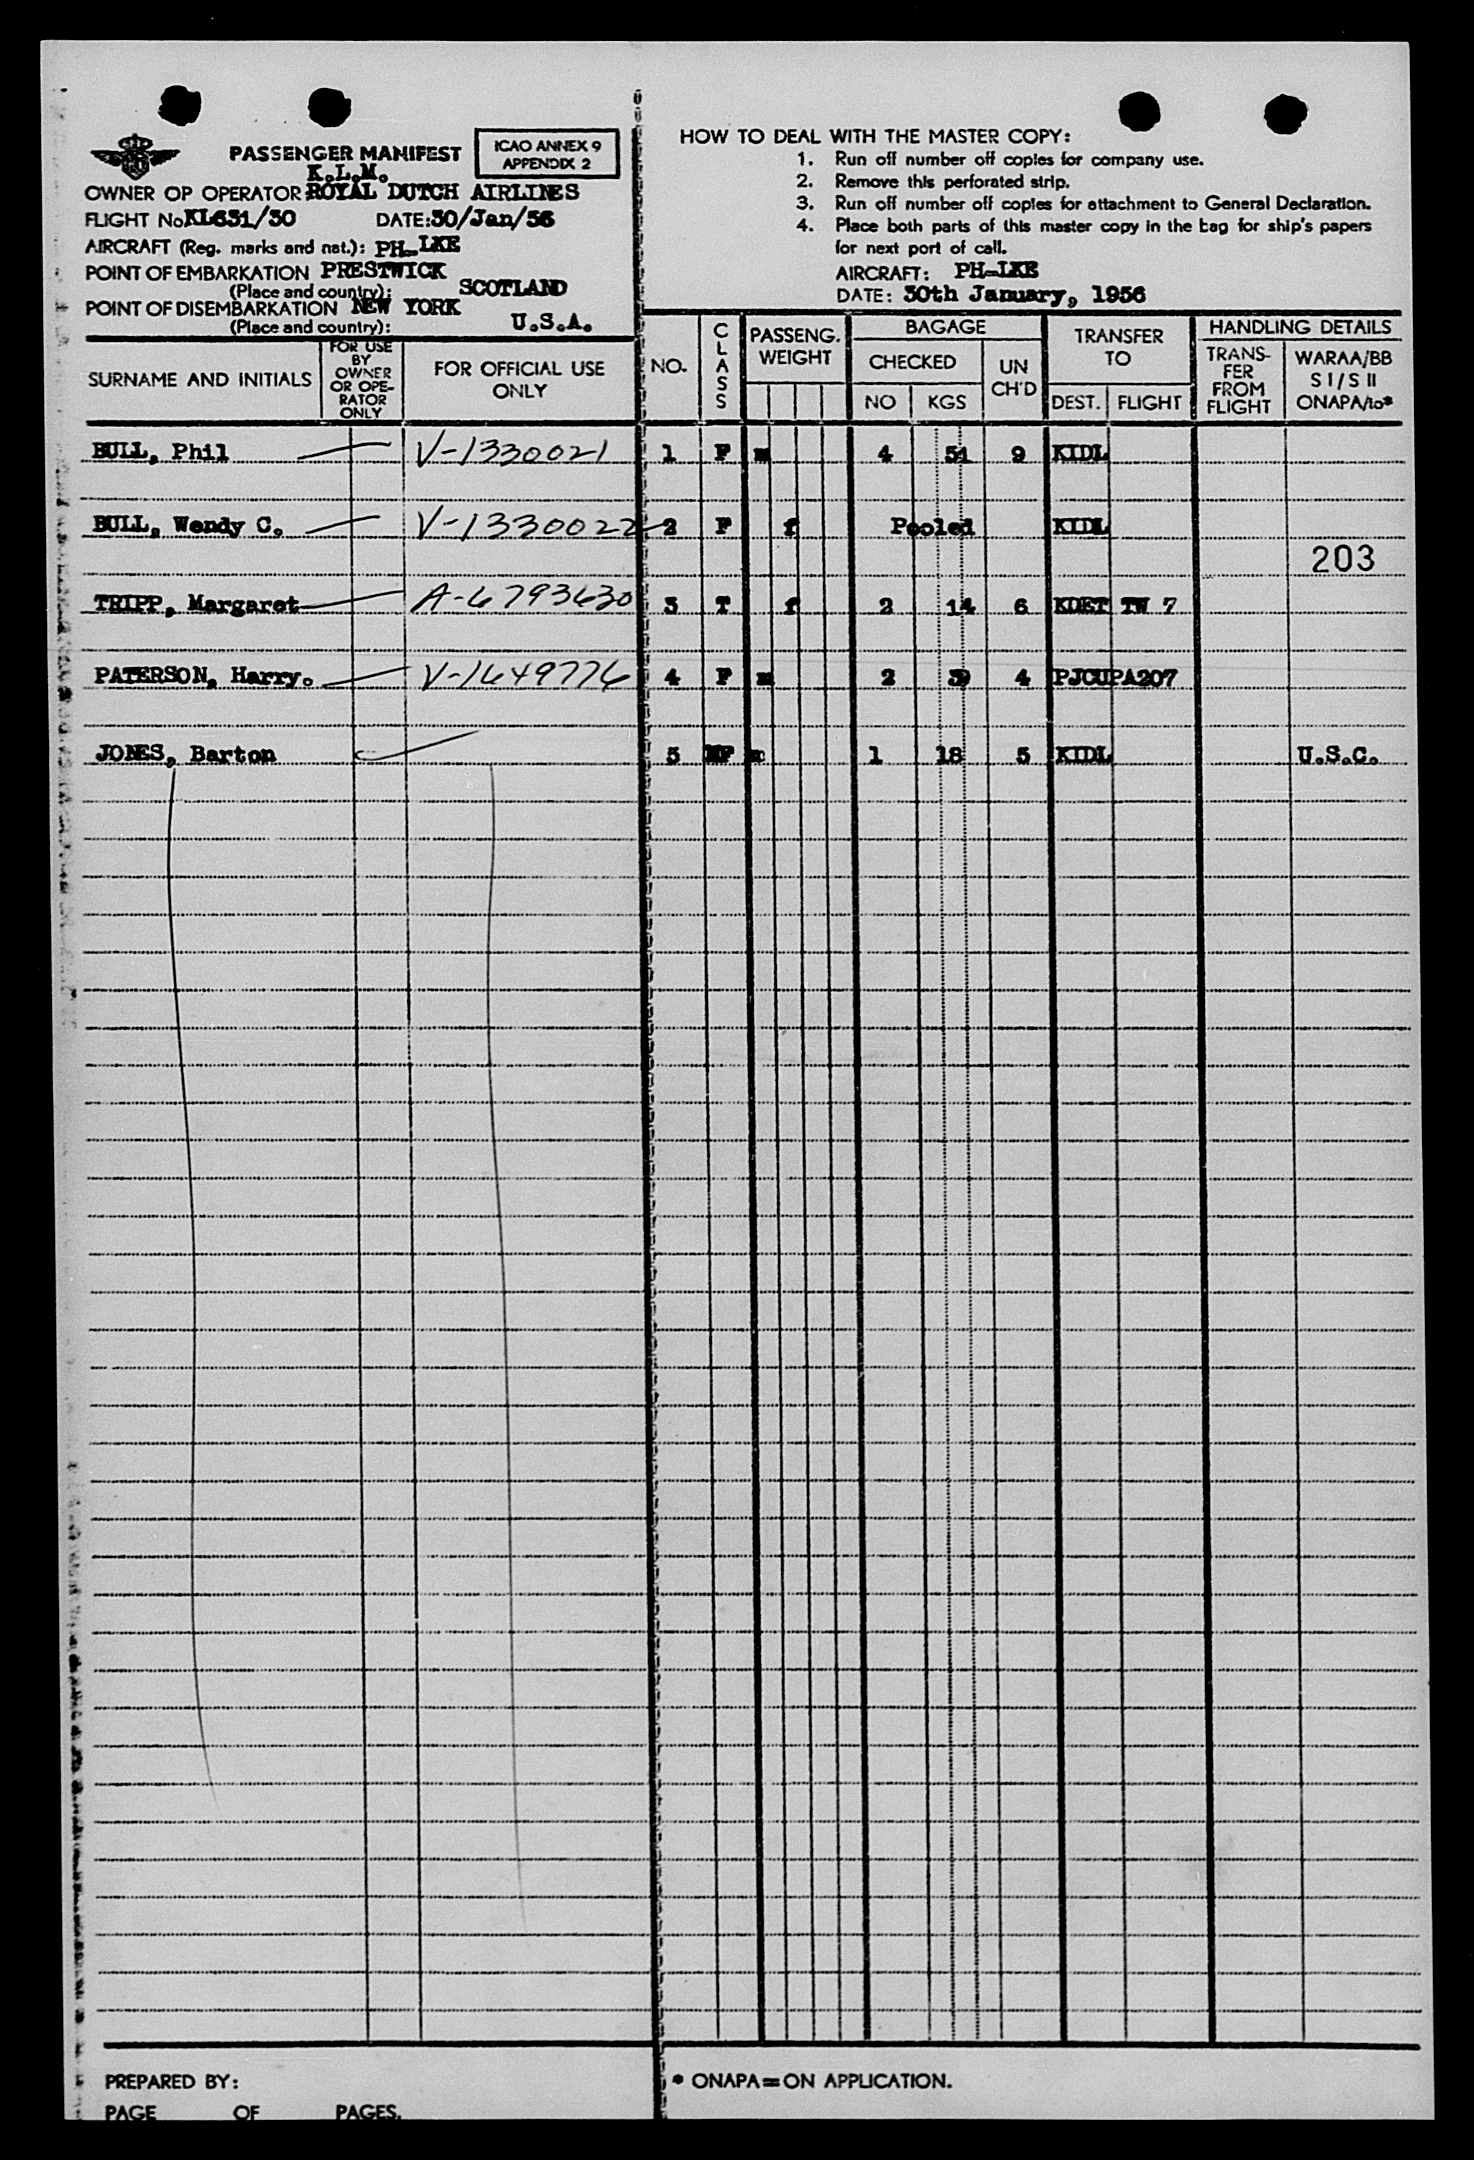 PASSENGER MANIFEST
ICAO ANNEX 9
APPENDIX 2
K.L.M.
OWNER OP OPERATOR ROYAL DUTCH AIRLINES
FLIGHT No KL631/30 DATE: 30/Jan/56
AIRCRAFT (Reg. marks and nat.): PH-LKE
POINT OF EMBARKATION PRESTWICK
(Place and country): SCOTLAND
POINT OF DISEMBARKATION NEW YORK
(Place and country): U.S.A.
HOW TO DEAL WITH THE MASTER COPY:
1. Run off number off copies for company use.
2. Remove this perforated strip.
3. Run off number off copies for attachment to General Declaration.
4. Place both parts of this master copy in the bag for ship's papers
for next port of call.
AIRCRAFT: PH-LKE
DATE: 30th January, 1956
SURNAME AND INITIALS
FOR USE
BY
OWNER
OR OPE-
RATOR
ONLY
FOR OFFICIAL USE
ONLY
NO.
CLASS
PASSENG.
WEIGHT
BAGAGE
CHECKED
NO KGS
UN
CH'D
TRANSFER
TO
DEST. FLIGHT
HANDLING DETAILS
TRANS-
FER
FROM
FLIGHT
WARAA/BB
S I / S II
ONAPA/to*
BULL, Phil V-1330021 1 F m 4 51 9 KIDL
BULL, Wendy C. V-1330022 2 F f Pooled KIDL
203
TRIPP, Margaret A-6793630 3 T f 2 14 6 KDET TW 7
PATERSON, Harry. V-1649776 4 F m 2 39 4 PJCUPA207
JONES, Barton 5 NF m 1 18 5 KIDL U.S.C.
PREPARED BY:
PAGE OF PAGES.
* ONAPA=ON APPLICATION.